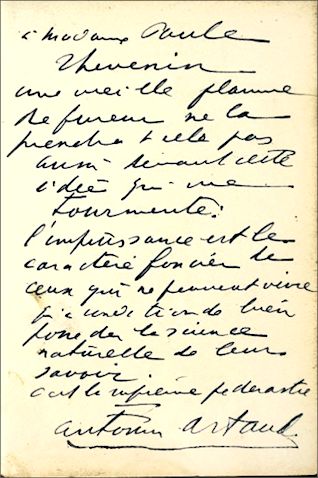 à Madame Paule
Thevenin
une vieille flamme
de fureur ne la
prendra t elle pas
aussi devant cette
idée qui me
tourmente:
l'impuissance est le
caractère foncier de
ceux qui ne peuvent vivre
qu'à condition de bien
fonder la science
naturelle de leur
savoir.
pederastie
Antonin Artaud